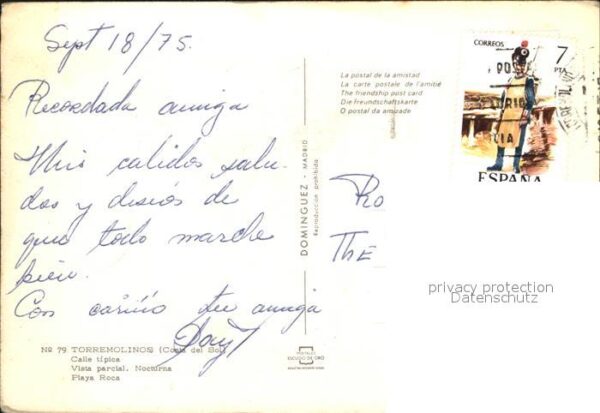 Sept 18/75.
Recordada amiga
Mis calidos salu-
dos y deseos de
que todo marche
bien.
Con cariño tu amiga
Nº 79 TORREMOLINOS (Costa del Sol)
Calle típica
Vista parcial. Nocturna
Playa Roca
POSTALES
ESCUDO DE ORO
DOMINGUEZ - MADRID
Reproducción prohibida
La postal de la amistad
La carte postale de l'amitié
The friendship post card
Die Freundschaftskarte
O postal da amizade
CORREOS
7
PTA
ESPAÑA
THE
privacy protection
Datenschutz